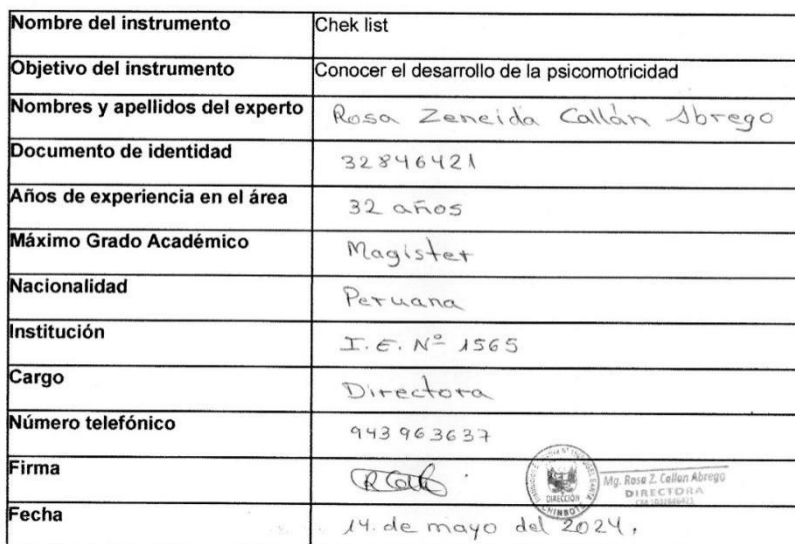 Nombre del instrumento Chek list
Objetivo del instrumento Conocer el desarrollo de la psicomotricidad
Nombres y apellidos del experto Rosa Zeneida Callán Abrego
Documento de identidad 32846421
Años de experiencia en el área 32 años
Máximo Grado Académico Magíster
Nacionalidad Peruana
Institución I.E. Nº 1565
Cargo Directora
Número telefónico 943963637
Firma
DIRECCIÓN
CHIMBOTE
Mg. Rosa Z. Callan Abrego
DIRECTORA
Fecha 14. de mayo del 2024.